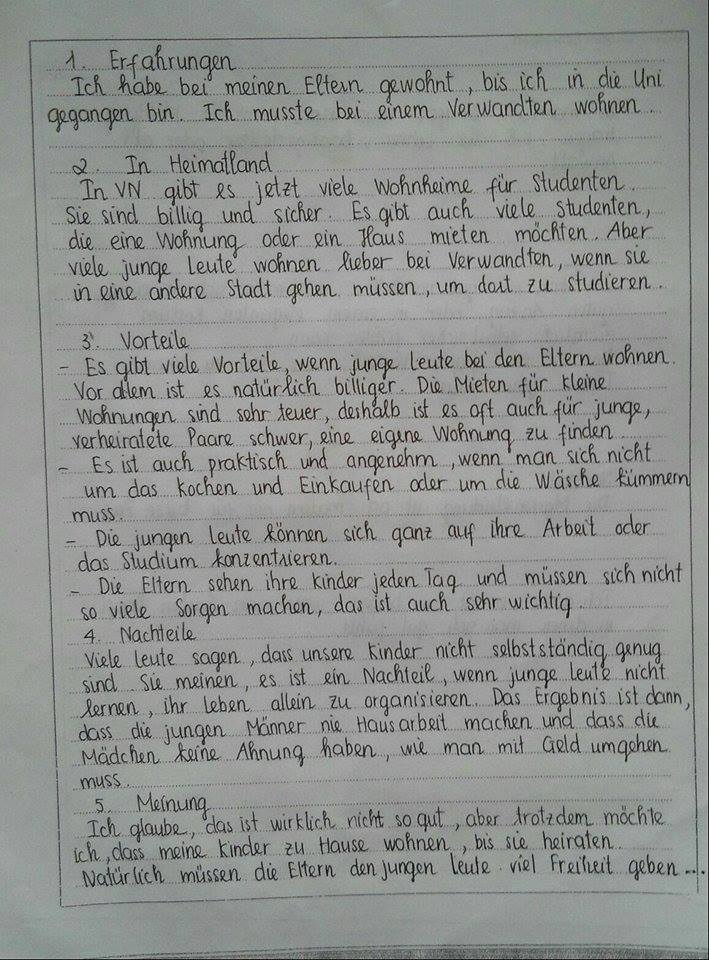 1. Erfahrungen
Ich habe bei meinen Eltern gewohnt, bis ich in die Uni
gegangen bin. Ich musste bei einem Verwandten wohnen.
2. In Heimatland
In VN gibt es jetzt viele Wohnheime für Studenten.
Sie sind billig und sicher. Es gibt auch viele Studenten,
die eine Wohnung oder ein Haus mieten möchten. Aber
viele junge Leute wohnen lieber bei Verwandten, wenn sie
in eine andere Stadt gehen müssen, um dort zu studieren.
3. Vorteile
- Es gibt viele Vorteile, wenn junge Leute bei den Eltern wohnen.
Vor allem ist es natürlich billiger. Die Mieten für kleine
Wohnungen sind sehr teuer, deshalb ist es oft auch für junge,
verheiratete Paare schwer, eine eigene Wohnung zu finden.
- Es ist auch praktisch und angenehm, wenn man sich nicht
um das Kochen und Einkaufen oder um die Wäsche kümmern
muss.
- Die jungen Leute können sich ganz auf ihre Arbeit oder
das Studium konzentrieren.
- Die Eltern sehen ihre Kinder jeden Tag und müssen sich nicht
so viele Sorgen machen, das ist auch sehr wichtig.
4. Nachteile
Viele Leute sagen, dass unsere Kinder nicht selbstständig genug
sind. Sie meinen, es ist ein Nachteil, wenn junge Leute nicht
lernen, ihr Leben allein zu organisieren. Das Ergebnis ist dann,
dass die jungen Männer nie Hausarbeit machen und dass die
Mädchen keine Ahnung haben, wie man mit Geld umgehen
muss.
5. Meinung
Ich glaube, das ist wirklich nicht so gut, aber trotzdem möchte
ich, dass meine Kinder zu Hause wohnen, bis sie heiraten.
Natürlich müssen die Eltern den jungen Leute viel Freiheit geben....